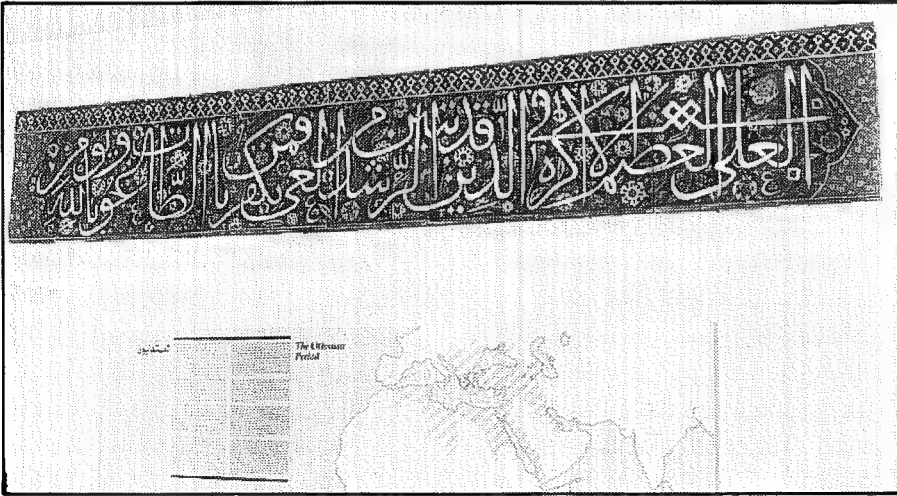 العلي العظيم لا إكراه في الدين قد تبين الرشد من الغي فمن يكفر بالطاغوت ويؤمن بالله
The Ottoman
Period